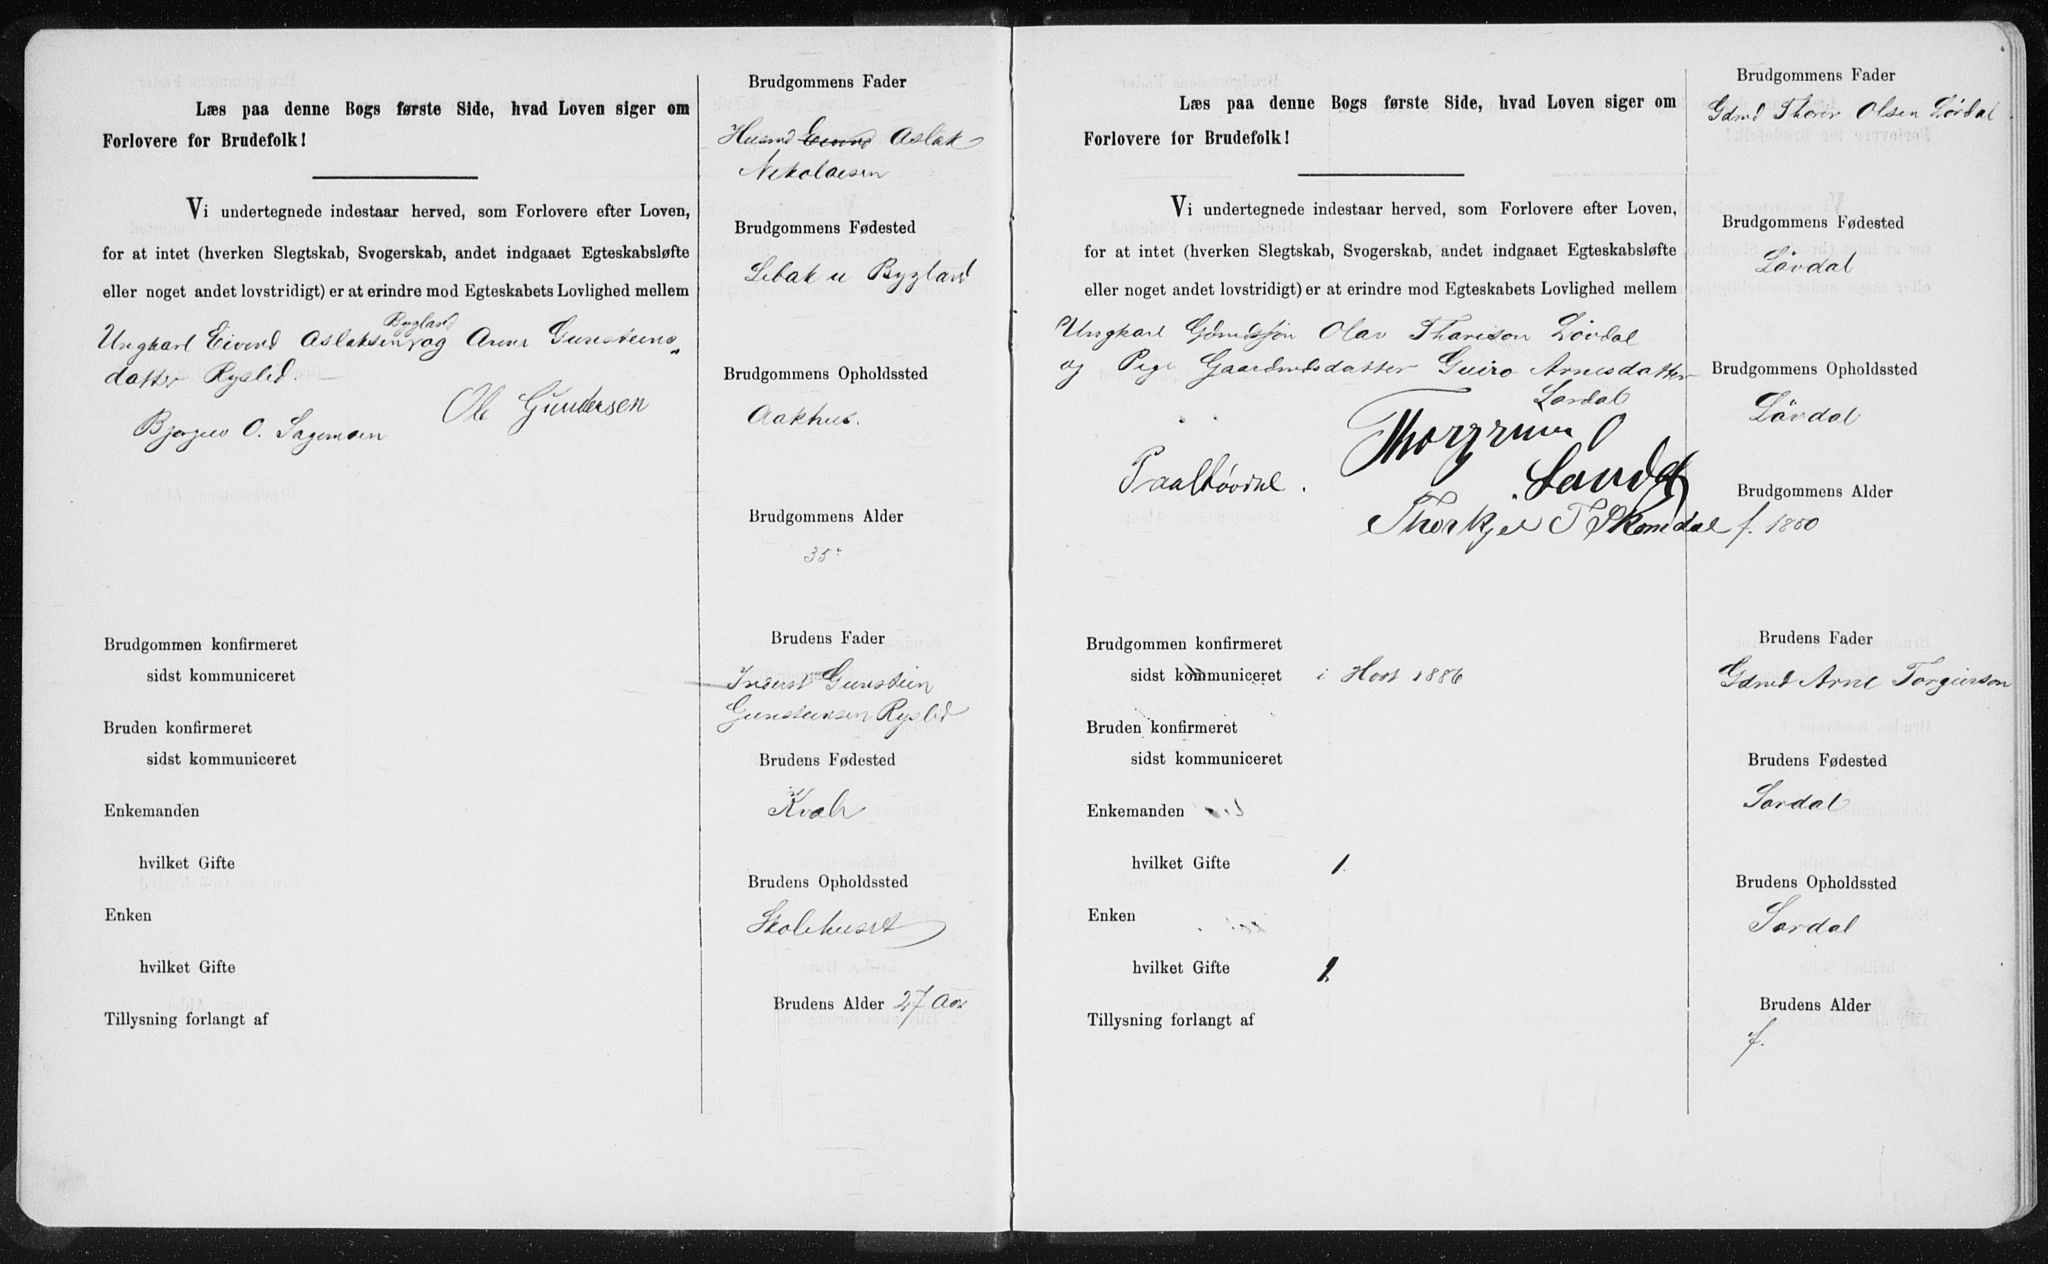 Læs paa denne Bogs første Side, hvad Loven siger om
Forlovere for Brudefolk!
Vi undertegnede indestaar herved, som Forlovere efter Loven,
for at intet (hverken Slegtskab, Svogerskab, andet indgaaet Egteskabsløfte
eller noget andet lovstridigt) er at erindre mod Egteskabets Lovlighed mellem
Bygland
Ungkarl Eivind Aslaksen og Anne Gunsteins-
datter Rysled.
Ole Gundersen
O. Sagemoen
Brudgommen konfirmeret
sidst kommuniceret
Bruden konfirmeret
sidst kommuniceret
Enkemanden
hvilket Gifte
Enken
hvilket Gifte
Tillysning forlangt af
Brudgommens Fader
Husmd Eivind Aslak
Nikolaisen
Brudgommens Fødested
Bygland
Brudgommens Opholdssted
Aakhus.
Brudgommens Alder
35
Brudens Fader
Inderst Gunstein
Gunsteinsen Rysled
Brudens Fødested
Brudens Opholdssted
Skolehuset
Brudens Alder 27 Aar
Læs paa denne Bogs første Side, hvad Loven siger om
Forlovere for Brudefolk!
Vi undertegnede indestaar herved, som Forlovere efter Loven,
for at intet (hverken Slegtskab, Svogerskab, andet indgaaet Egteskabsløfte
eller noget andet lovstridigt) er at erindre mod Egteskabets Lovlighed mellem
Ungkarl Gdmdssøn Olav Thorison Løvdal
og Pige Gaardmdsdatter Guro Arnesdatter
Sordal
Thorgrim
Paal Løvdal.
Sordal
Thorkjel T Skomedal
Brudgommen konfirmeret
sidst kommuniceret i Høst 1886
Bruden konfirmeret
sidst kommuniceret
Enkemanden
hvilket Gifte 1
Enken
hvilket Gifte 1
Tillysning forlangt af
Brudgommens Fader
Gdmd Thorer Olsen Løvdal
Brudgommens Fødested
Løvdal
Brudgommens Opholdssted
Løvdal
Brudgommens Alder
f. 1860
Brudens Fader
Gdmd Arne Torgiersen
Brudens Fødested
Sordal
Brudens Opholdssted
Sordal
Brudens Alder
f.